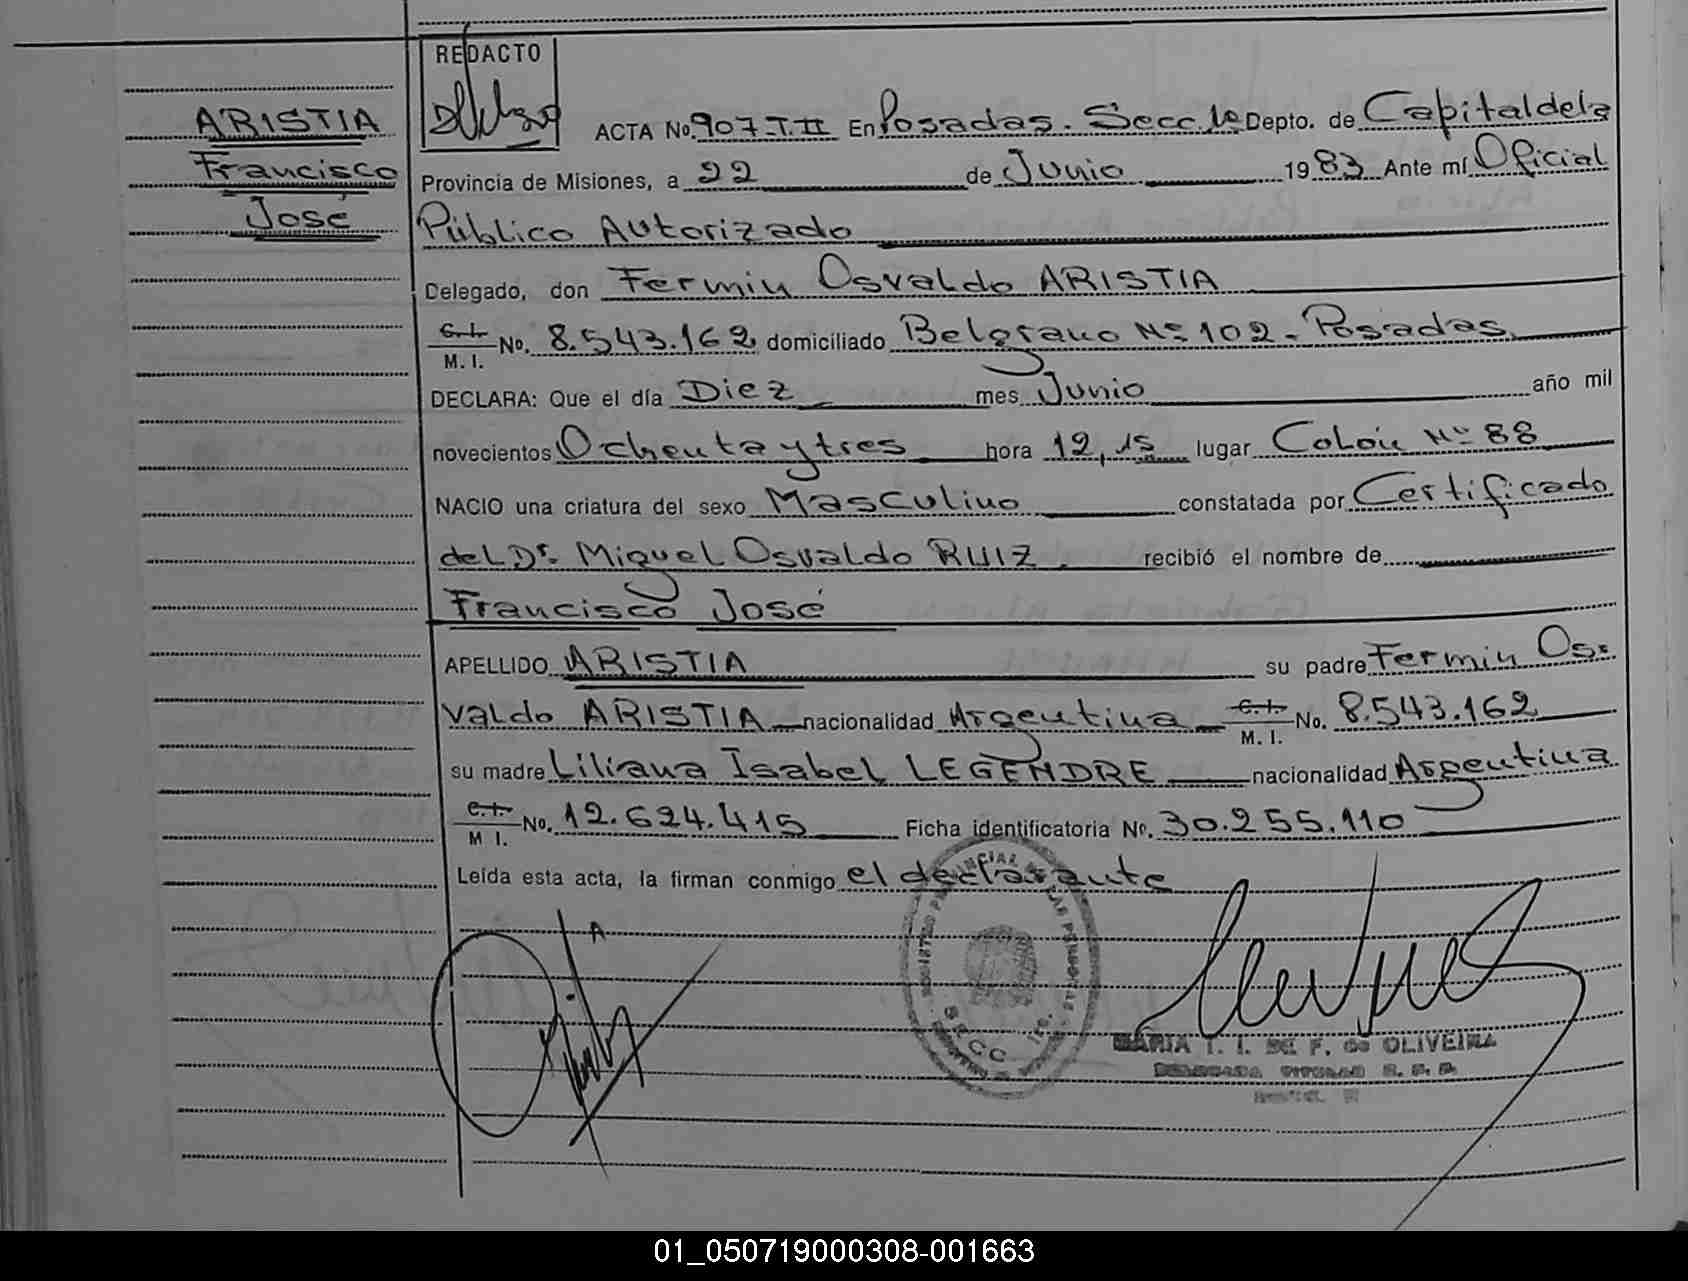 REDACTO
ARISTIA
Francisco
José
ACTA No. 907-T.II En Posadas. Secc. 1º Depto. de Capital de la
Provincia de Misiones, a 22 de Junio 1983 Ante mí Oficial
Público Autorizado
Delegado, don Fermin Osvaldo ARISTIA
C.I.
M. I. No. 8.543.162 domiciliado Belgrano Nº 102 - Posadas
DECLARA: Que el día Diez mes Junio año mil
novecientos Ochenta y tres hora 12,15 lugar Colón Nº 88
NACIO una criatura del sexo Masculino constatada por Certificado
del Dr. Miguel Osvaldo RUIZ recibió el nombre de
Francisco José
APELLIDO ARISTIA su padre Fermin Os=
valdo ARISTIA nacionalidad Argentina C.I. No. 8.543.162
M. I.
su madre Liliana Isabel LEGENDRE nacionalidad Argentina
C.I.
M I. No. 12.624.415 Ficha identificatoria No. 30.255.110
Leída esta acta, la firman conmigo el declarante
REGISTRO PROVINCIAL DE LAS PERSONAS
SECC. 1ra.
MARIA T. I. DE F. de OLIVEIRA
DELEGADA TITULAR R. P. P.
01_050719000308-001663